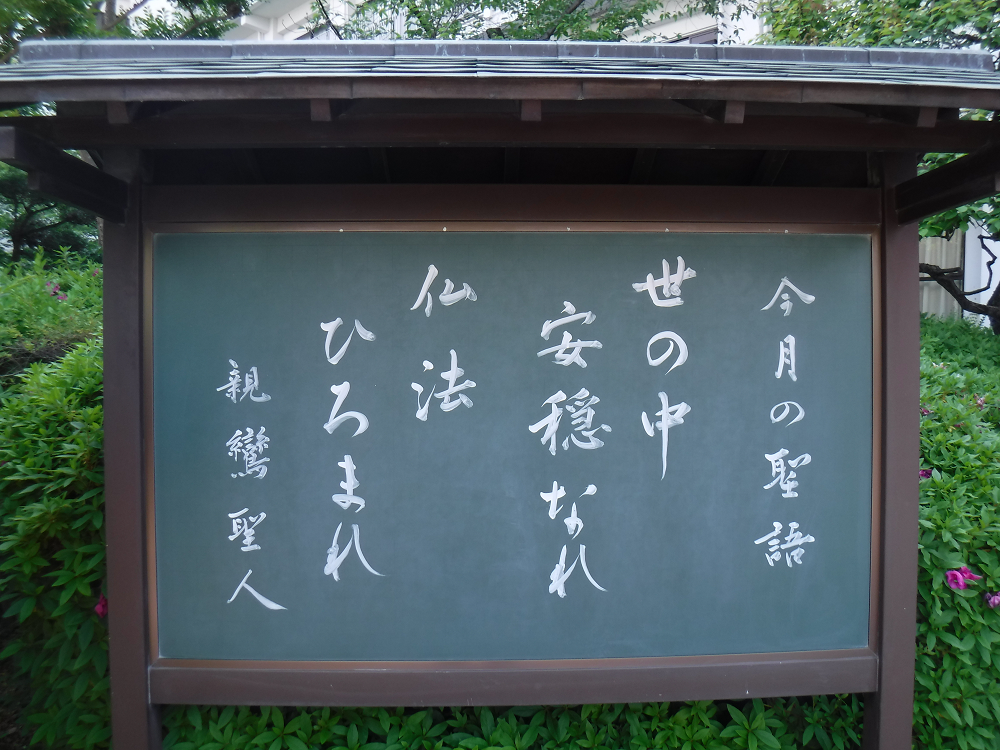 今月の聖語
世の中
安穏なれ
仏法
ひろまれ
親鸞聖人